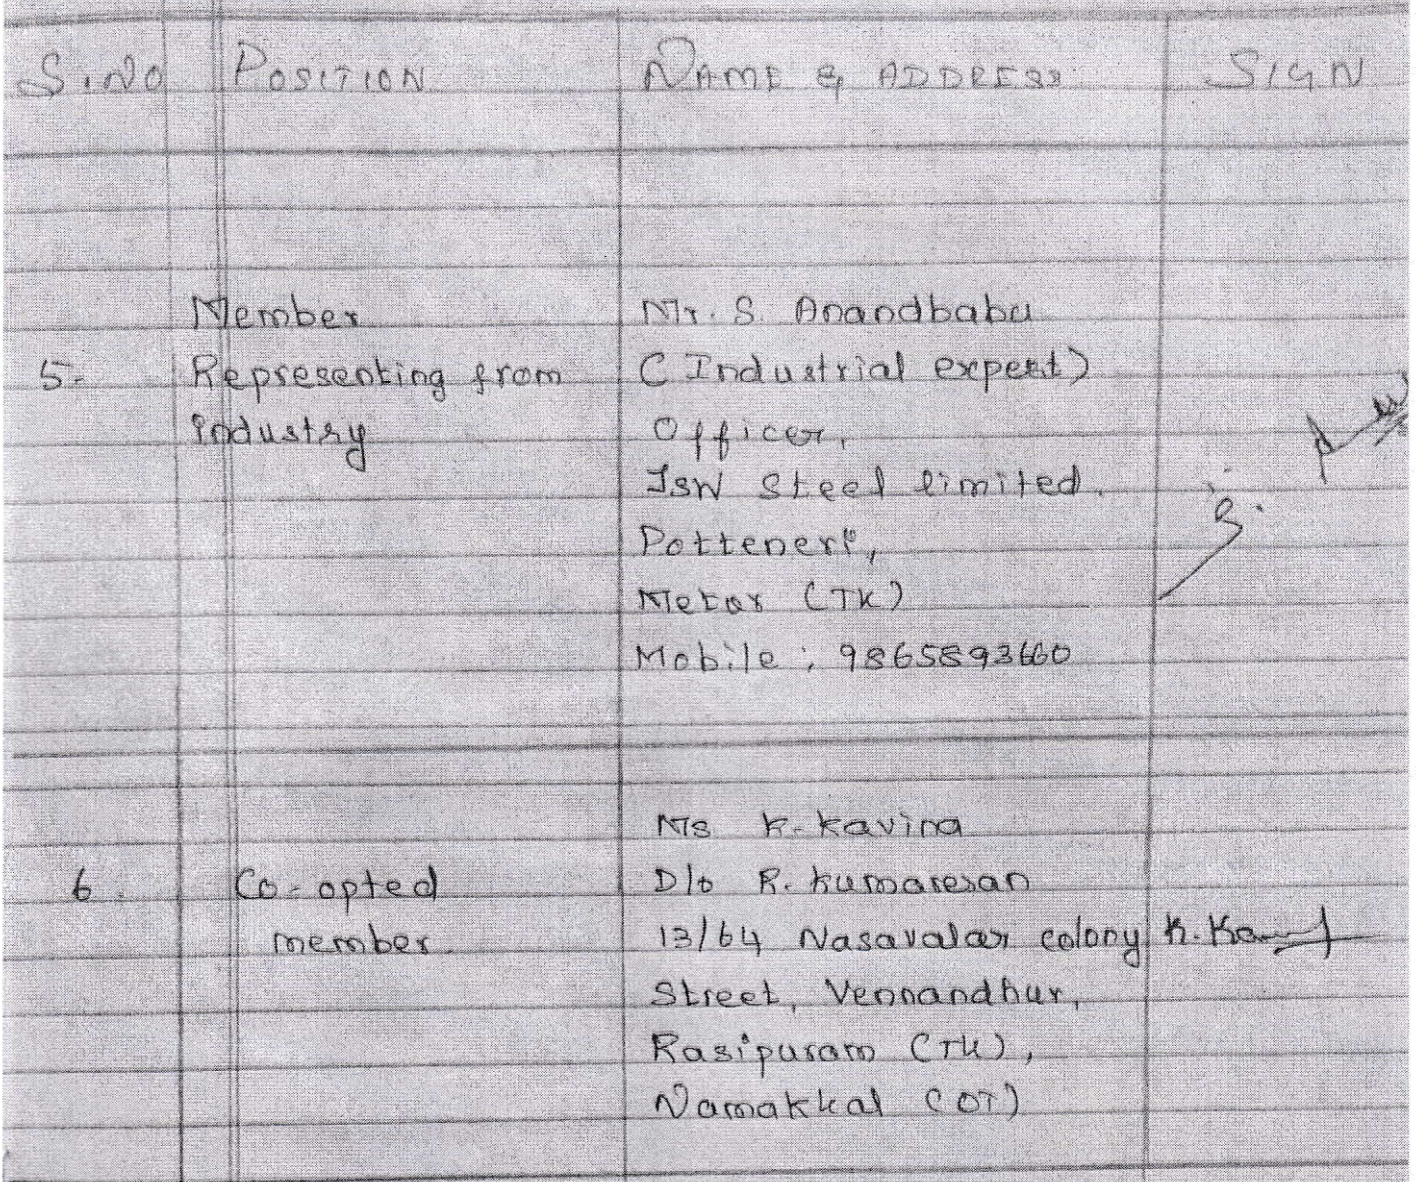 S.No POSITION NAME & ADDRESS SIGN
Member
5. Representing from
industry
Mr. S. Anandbabu
( Industrial expert)
Officer,
JSW Steel limited.
Potteneri,
Metar (TK)
Mobile : 9865893660
6. Co-opted
member
Ms K. Kavina
D/o R. Kumaresan
13/64 Nasavalar colony
Street, Vennandhur,
Rasipuram (TK),
Namakkal (DT)